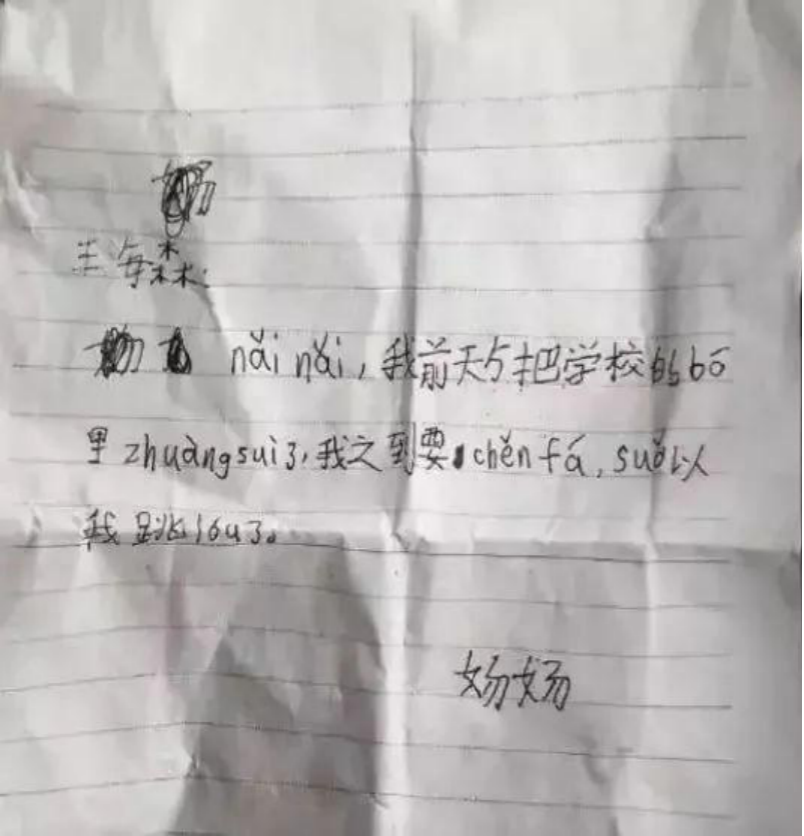 王海森:
nǎi nǎi, 我前天把学校的bō
里zhuàngsuì了,我之到要chěn fá, suǒ以
我跳lóu了。